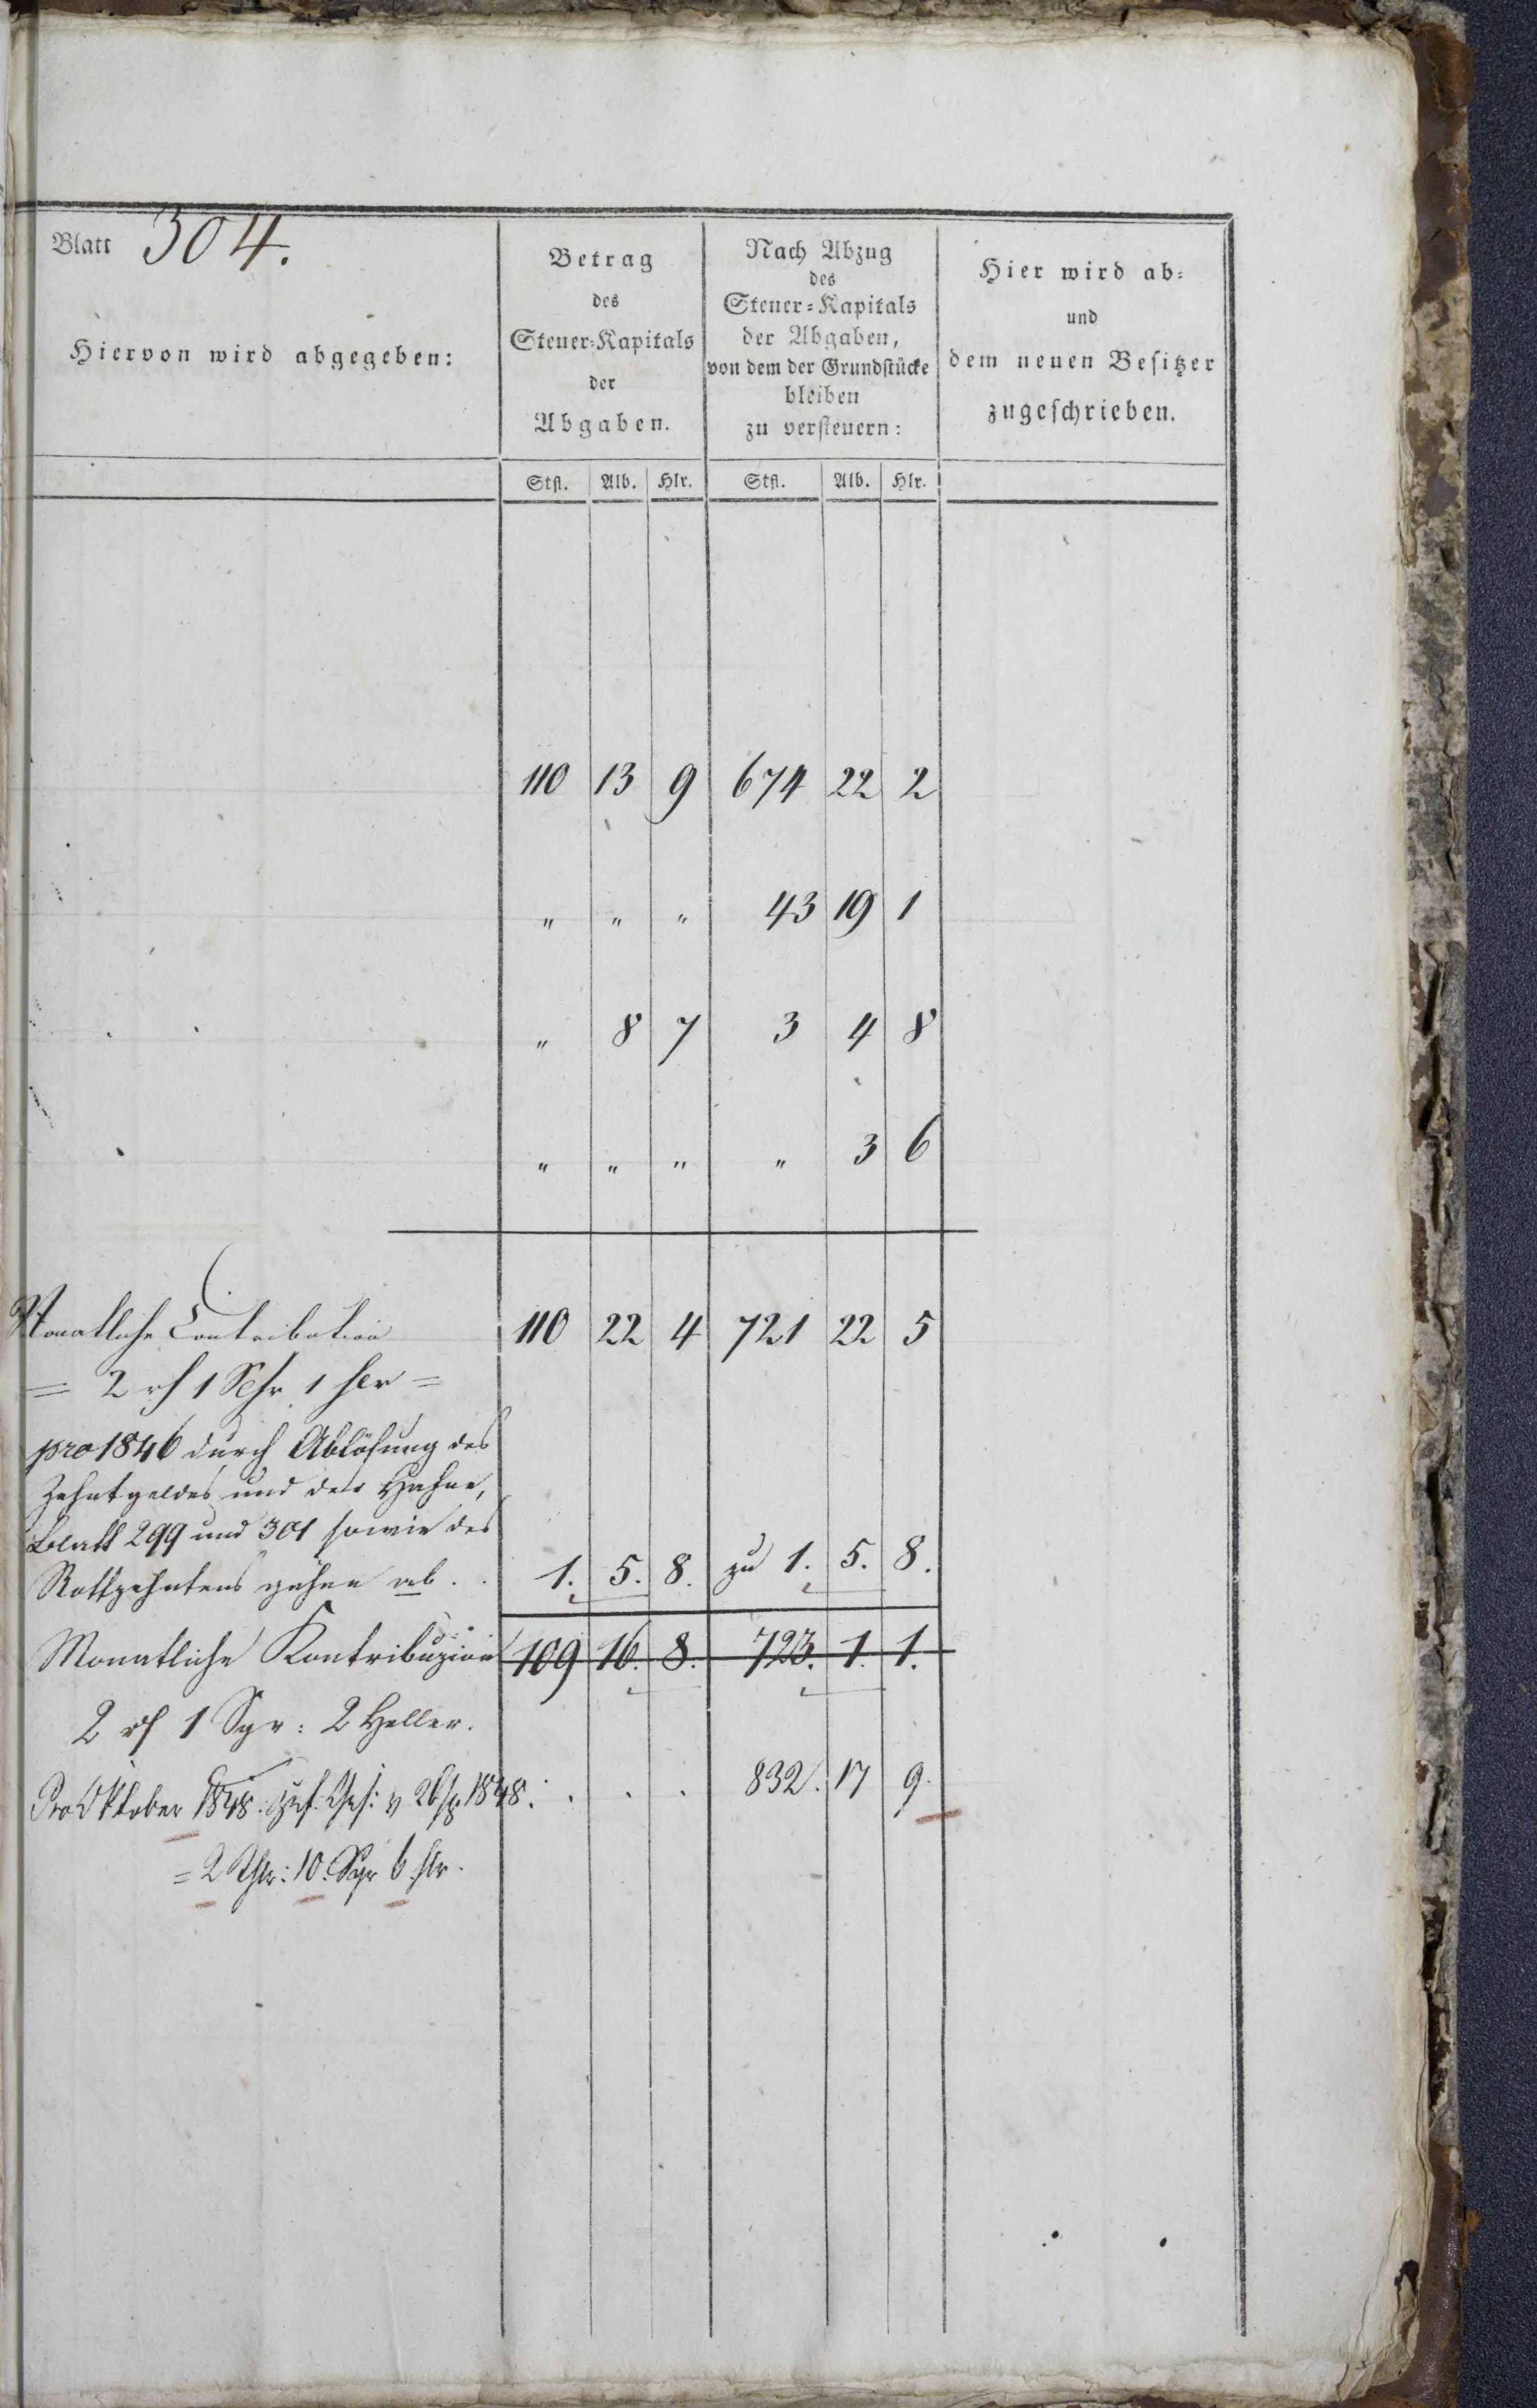 Blatt 304.
Hiervon wird abgegeben:
Betrag
des
Steuer-Kapitals
der
Abgaben.
Nach Abzug
des
Steuer-Kapitals
der Abgaben,
von dem der Grundstücke
bleiben
zu versteuern:
Hier wird ab-
und
dem neuen Besitzer
zugeschrieben.
Stfl. Alb. Hlr. Stfl. Alb. Hlr.
110 13 9 674 22 2
" " " 43 19 1
" 8 7 3 4 8
" " " " 3 6
Monatliche Contribution 110 22 4 721 22 5
= 2 rh 1 Sgr 1 hlr =
pro 1846 durch Ablösung des
Zehntgeldes und der Hahne,
Blatt 299 und 301 sowie des
Rottzehntens gehen ab . . 1. 5. 8. zu 1. 5. 8.
Monatliche Kontribuzion 109 16. 8. 723. 1. 1.
2 rh 1 Sgr: 2 Heller.
Pro Oktober 1848. Ges: v 26 1848: . . . 832. 17 9.
= 2 Thlr: 10. Sgr 6 hlr.